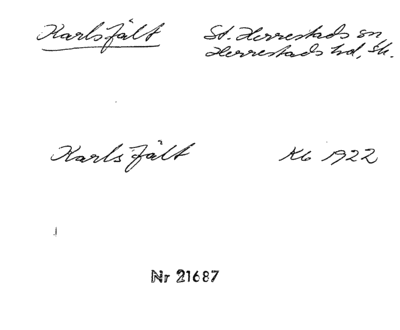 Karlsfält St. Herrestads sn
Herrestads hd, Sk.
Karlsfält Kb 1922
Nr 21687